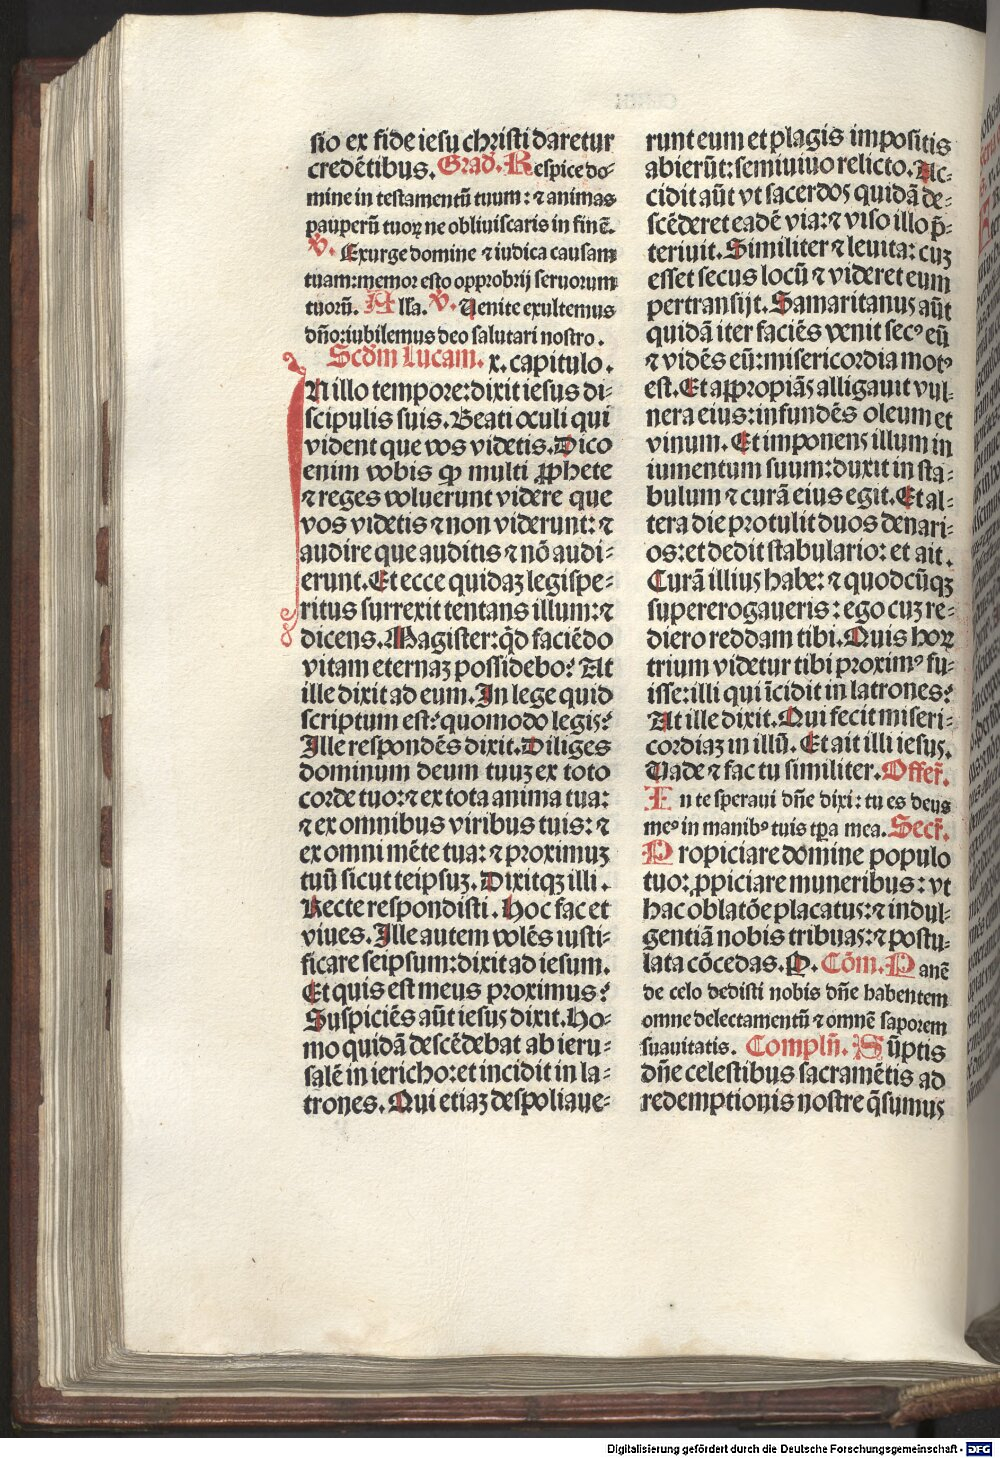 sio ex fide iesu christi daretur
credētibus. Grad̄. Respice do-
mine in testamentū tuum: ⁊ animas
pauperū tuoꝝ ne obliuiscaris in finē.
℣. Exurge domine ⁊ iudica causam
tuam: memor esto opprobrij seruorum
tuorū. Alla. ℣. Uenite exultemus
dn̄o: iubilemus deo salutari nostro.
Scdm Lucam. x. capitulo.
In illo tempore: dixit iesus di-
scipulis suis. Beati oculi qui
vident que vos videtis. Dico
enim vobis ꝙ multi ꝓphete
⁊ reges voluerunt videre que
vos videtis ⁊ non viderunt: ⁊
audire que auditis ⁊ nō audi-
erunt. Et ecce quidaꝫ legispe-
ritus surrexit tentans illum: ⁊
dicens. Magister: qd̄ faciēdo
vitam eternaꝫ possidebo? At
ille dixit ad eum. In lege quid
scriptum est? quomodo legis?
Ille respondēs dixit. Diliges
dominum deum tuuꝫ ex toto
corde tuo: ⁊ ex tota anima tua:
⁊ ex omnibus viribus tuis: ⁊
ex omni mēte tua: ⁊ proximuꝫ
tuū sicut teipsuꝫ. Dixitqꝫ illi.
Recte respondisti. Hoc fac et
viues. Ille autem volēs iusti-
ficare seipsum: dixit ad iesum.
Et quis est meus proximus?
Suspiciēs aūt iesus dixit. Ho-
mo quidā descēdebat ab ieru-
salē in iericho: et incidit in la-
trones. Qui etiaꝫ despoliaue-
runt eum et plagis impositis
abierūt: semiuiuo relicto. Ac-
cidit aūt vt sacerdos quidā de-
scēderet eadē via: ⁊ viso illo p̄-
teriuit. Similiter ⁊ leuita: cuꝫ
esset secus locū ⁊ videret eum
pertransijt. Samaritanus aūt
quidā iter faciēs venit secꝰ eū
⁊ vidēs eū: misericordia motꝰ
est. Et appropiās alligauit vul-
nera eius: infundēs oleum et
vinum. Et imponens illum in
iumentum suum: duxit in sta-
bulum ⁊ curā eius egit. Et al-
tera die protulit duos denari-
os: et dedit stabulario: et ait.
Curā illius habe: ⁊ quodcūqꝫ
supererogaueris: ego cuꝫ re-
diero reddam tibi. Quis hoꝝ
trium videtur tibi proximꝰ fu-
isse: illi qui īcidit in latrones?
At ille dixit. Qui fecit miseri-
cordiaꝫ in illū. Et ait illi iesus.
Uade ⁊ fac tu similiter. Offer̄.
In te speraui dn̄e dixi: tu es deus
meꝰ in manibꝰ tuis tp̄a mea. Secr̄.
Propiciare domine populo
tuo: ꝓpiciare muneribus: vt
hac oblatōe placatus: ⁊ indul-
gentiā nobis tribuas: ⁊ postu-
lata cōcedas. P. Cōm. Panē
de celo dedisti nobis dn̄e habentem
omne delectamentū ⁊ omnē saporem
suauitatis. Compln̄. Sūptis
dn̄e celestibus sacramētis ad
redemptionis nostre q̄sumus
Digitalisierung gefördert durch die Deutsche Forschungsgemeinschaft - DFG